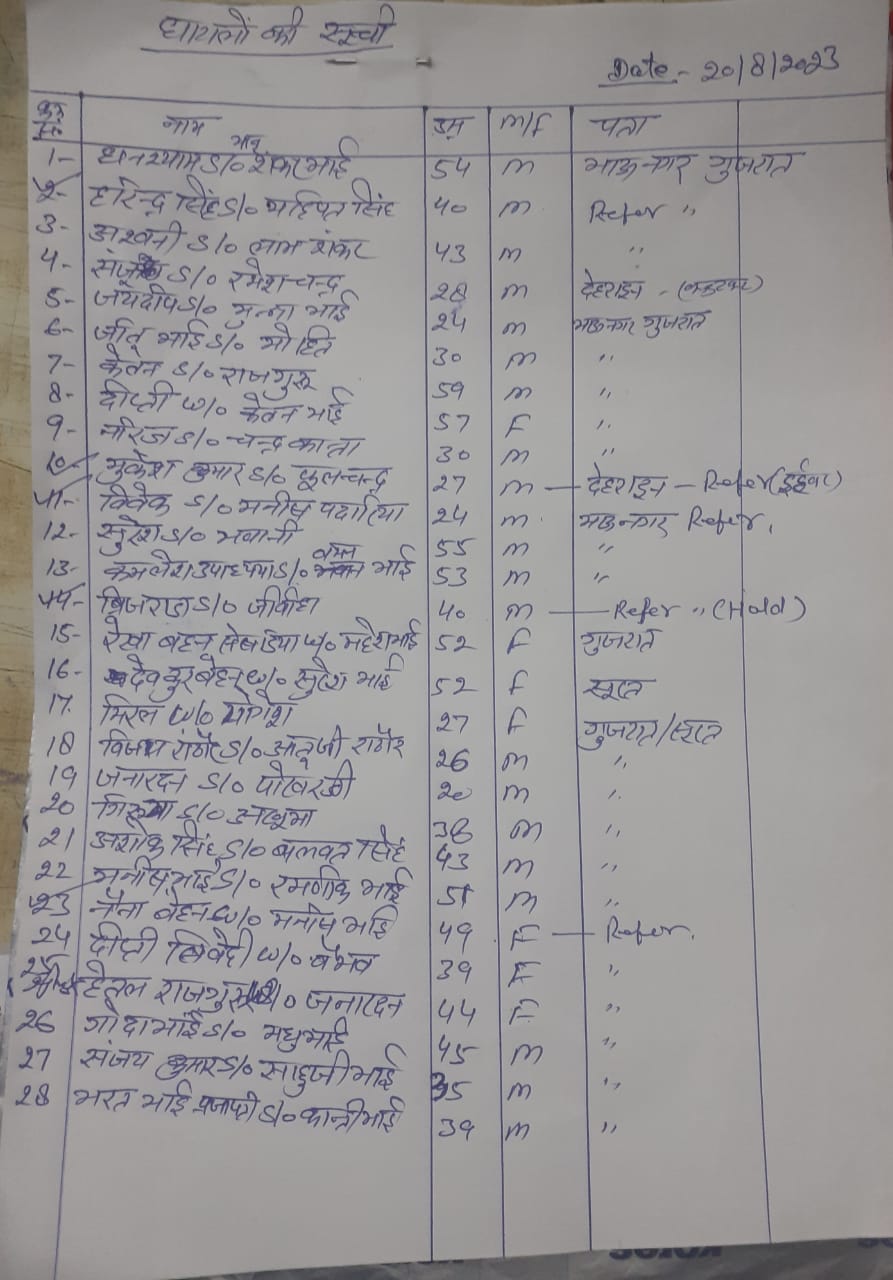 घायलों की सूची
Date - 20/8/2023
क्र सं० नाम उम्र M/F पता
1- घनश्याम S/o भानू शंकर भाई 54 M भावनगर गुजरात
2- हरिन्द्र सिंह S/o महिपत सिंह 40 M Refer "
3- अश्वनी S/o लाभ शंकर 43 M "
4- S/o रमेश चन्द्र 28 M देहरादून -
5- जयदीप S/o मुन्ना भाई 24 M भावनगर गुजरात
6- जीतू भाई S/o मोहित 30 M "
7- केतन S/o राजगुरु 59 M "
8- दीप्ती W/o केतन भाई 57 F "
9- नीरज S/o चन्द्र कान्ता 30 M "
10- मुकेश कुमार S/o फूलचन्द्र 27 M - देहरादून - Refer (ड्राईवर)
11- विवेक S/o मनीष 24 M भावनगर Refer,
12- सुरेश S/o भवानी 55 M "
13- कमलेश उपाध्याय S/o भाई 53 M "
14- ब्रिजराज S/o 40 M - Refer " (Hold)
15- रेखा बहन W/o महेश भाई 52 F गुजरात
16- बेहन W/o सुरेश भाई 52 F सूरत
17. मिरल W/o योगेश 27 F गुजरात/सूरत
18 विजय राठौर S/o राठौर 26 M "
19 जनारदन S/o 20 M "
20 S/o 38 M "
21 अशोक सिंह S/o बलवत सिंह 43 M "
22 मनीष भाई S/o रमणीक भाई 51 M "
23 नैना बेहन W/o मनीष भाई 49 F - Refer.
24 दीप्ती त्रिवेदी W/o वैभव 39 F "
25 हेतल राजगुरु W/o जनारदन 44 F "
26 गोदाभाई S/o मधुभाई 45 M "
27 संजय कुमार S/o भाई 35 M "
28 भरत भाई प्रजापती S/o कान्तीभाई 39 M "